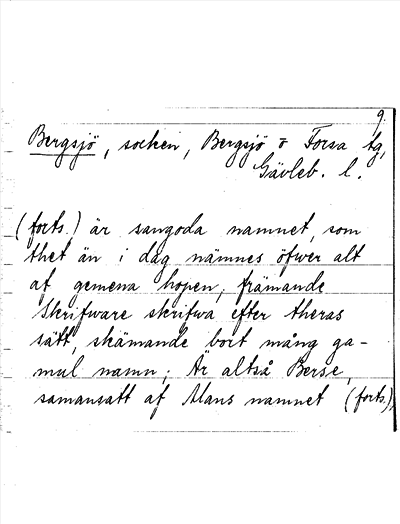 9.
Bergsjö, socken, Bergsjö o Forsa tg,
Gävleb. l.
(forts.) är sangoda namnet, som
thet än i dag nämnes öfwer alt
af gemena hopen, främande
Skrifware skrifwa efter theras
sätt, skämande bort mång ga-
mal namn; Är altså Berse,
samansatt af Mans namnet (forts.),